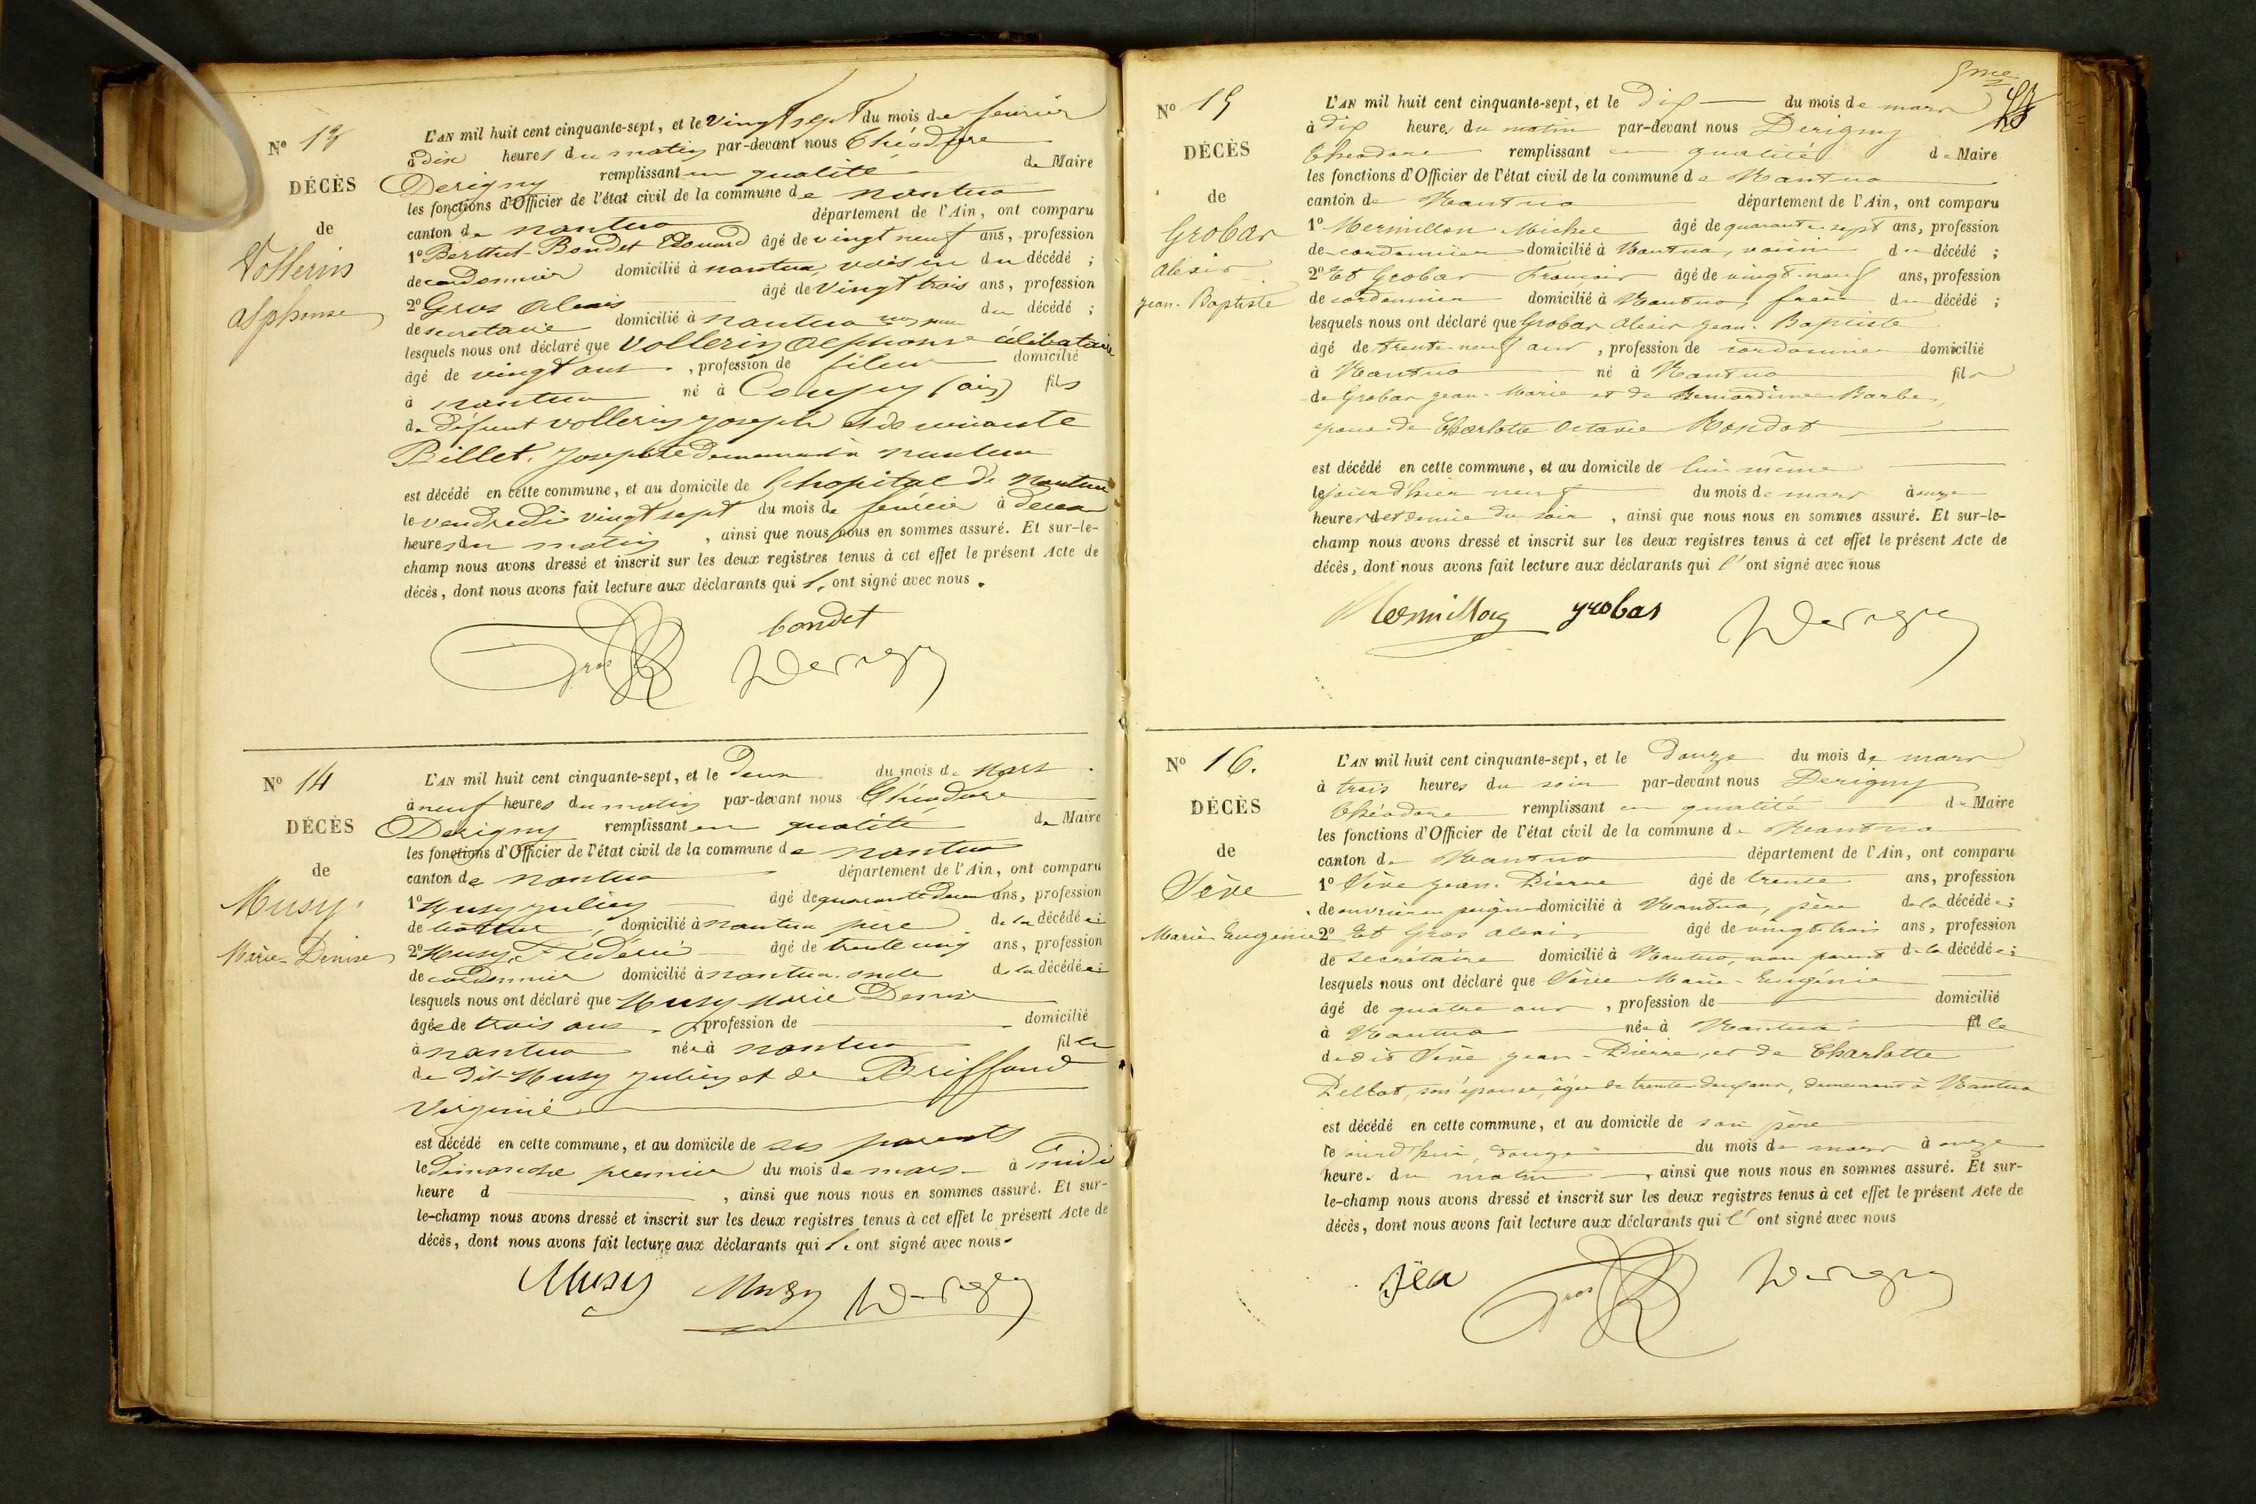 Nº 13
DÉCÈS
de
Vollerin
alphonse
L'AN mil huit cent cinquante-sept, et le vingt sept du mois de fevrier
à dix heures du matin par-devant nous Théodore
Derigny remplissant en qualité de Maire
les fonctions d'Officier de l'état civil de la commune de nantua
canton de nantua département de l'Ain, ont comparu
1º Berthet-Bondet Edouard âgé de vingt neuf ans, profession
de cordonnier domicilié à nantua, voisin du décédé ;
2º Gros alexis âgé de vingt trois ans, profession
de secretaire domicilié à nantua du décédé ;
lesquels nous ont déclaré que Vollerin alphonse célibataire
âgé de vingt ans, profession de fileur domicilié
à nantua né à (ain) fils
de défunt vollerin joseph et de vivante
Billet, josephte demeurant à nantua
est décédé en cette commune, et au domicile de l'hopital de nantua
le vendredi vingt sept du mois de fevrier à deux
heures du matin, ainsi que nous nous en sommes assuré. Et sur-le-
champ nous avons dressé et inscrit sur les deux registres tenus à cet effet le présent Acte de
décès, dont nous avons fait lecture aux déclarants qui l'ont signé avec nous.
Gros bondet Derigny
Nº 14
DÉCÈS
de
Musy
Marie-Denise
L'AN mil huit cent cinquante-sept, et le deux du mois de Mars
à neuf heures du matin par-devant nous Théodore
Derigny remplissant en qualité de Maire
les fonctions d'Officier de l'état civil de la commune de nantua
canton de nantua département de l'Ain, ont comparu
1º Musy julien âgé de quarante deux ans, profession
de, domicilié à nantua père de la décédée ;
2º Musy, Fréderic âgé de trente cinq ans, profession
de cordonnier domicilié à nantua. oncle de la décédée ;
lesquels nous ont déclaré que Musy Marie Denise
âgée de trois ans, profession de domicilié
à nantua née à nantua fille
de dit Musy julien et de Briffaud
Virginie
est décédé en cette commune, et au domicile de ses parents
le Dimanche premier du mois de mars à midi
heure d , ainsi que nous nous en sommes assuré. Et sur-
le-champ nous avons dressé et inscrit sur les deux registres tenus à cet effet le présent Acte de
décès, dont nous avons fait lecture aux déclarants qui l'ont signé avec nous.
Musy Musy Derigny
5me
Nº 15
DÉCÈS
de
Grobas
alexis
jean-Baptiste
L'AN mil huit cent cinquante-sept, et le dix du mois de mars
à dix heures du matin par-devant nous Derigny
Théodore remplissant en qualité de Maire
les fonctions d'Officier de l'état civil de la commune de Nantua
canton de Nantua département de l'Ain, ont comparu
1º Mermillon Michel âgé de quarante sept ans, profession
de cordonnier domicilié à Nantua, voisin du décédé ;
2º Et Grobas François âgé de vingt-neuf ans, profession
de cordonnier domicilié à Nantua, frère du décédé ;
lesquels nous ont déclaré que Grobas alexis jean-Baptiste
âgé de trente-neuf ans, profession de cordonnier domicilié
à Nantua né à Nantua fils
de Grobas jean-Marie et de Bernardine Barbe,
epoux de Charlotte Octavie Rondot
est décédé en cette commune, et au domicile de lui-même
le jour d'hier neuf du mois de mars à onze
heures et demie du soir, ainsi que nous nous en sommes assuré. Et sur-le-
champ nous avons dressé et inscrit sur les deux registres tenus à cet effet le présent Acte de
décès, dont nous avons fait lecture aux déclarants qui l'ont signé avec nous
Mermillon grobas Derigny
Nº 16.
DÉCÈS
de
Sève
Marie Eugénie
L'AN mil huit cent cinquante-sept, et le douze du mois de mars
à trois heures du soir par-devant nous Derigny
Théodore remplissant en qualité de Maire
les fonctions d'Officier de l'état civil de la commune de Nantua
canton de Nantua département de l'Ain, ont comparu
1º Sève jean-Pierre âgé de trente ans, profession
de ouvrier en peignes domicilié à Nantua, père de la décédée ;
2º Et Gros alexis âgé de vingt-trois ans, profession
de secrétaire domicilié à Nantua, non parent de la décédée ;
lesquels nous ont déclaré que Sève Marie-Eugénie
âgé de quatre ans, profession de domicilié
à Nantua née à Nantua fille
de dit Sève jean-Pierre, et de Charlotte
Pelbot, son épouse, âgée de trente-deux ans, demeurant à Nantua
est décédé en cette commune, et au domicile de son père
le aujourd'hui, douze du mois de mars à onze
heure. du matin, ainsi que nous nous en sommes assuré. Et sur-
le-champ nous avons dressé et inscrit sur les deux registres tenus à cet effet le présent Acte de
décès, dont nous avons fait lecture aux déclarants qui l'ont signé avec nous
Gros Derigny